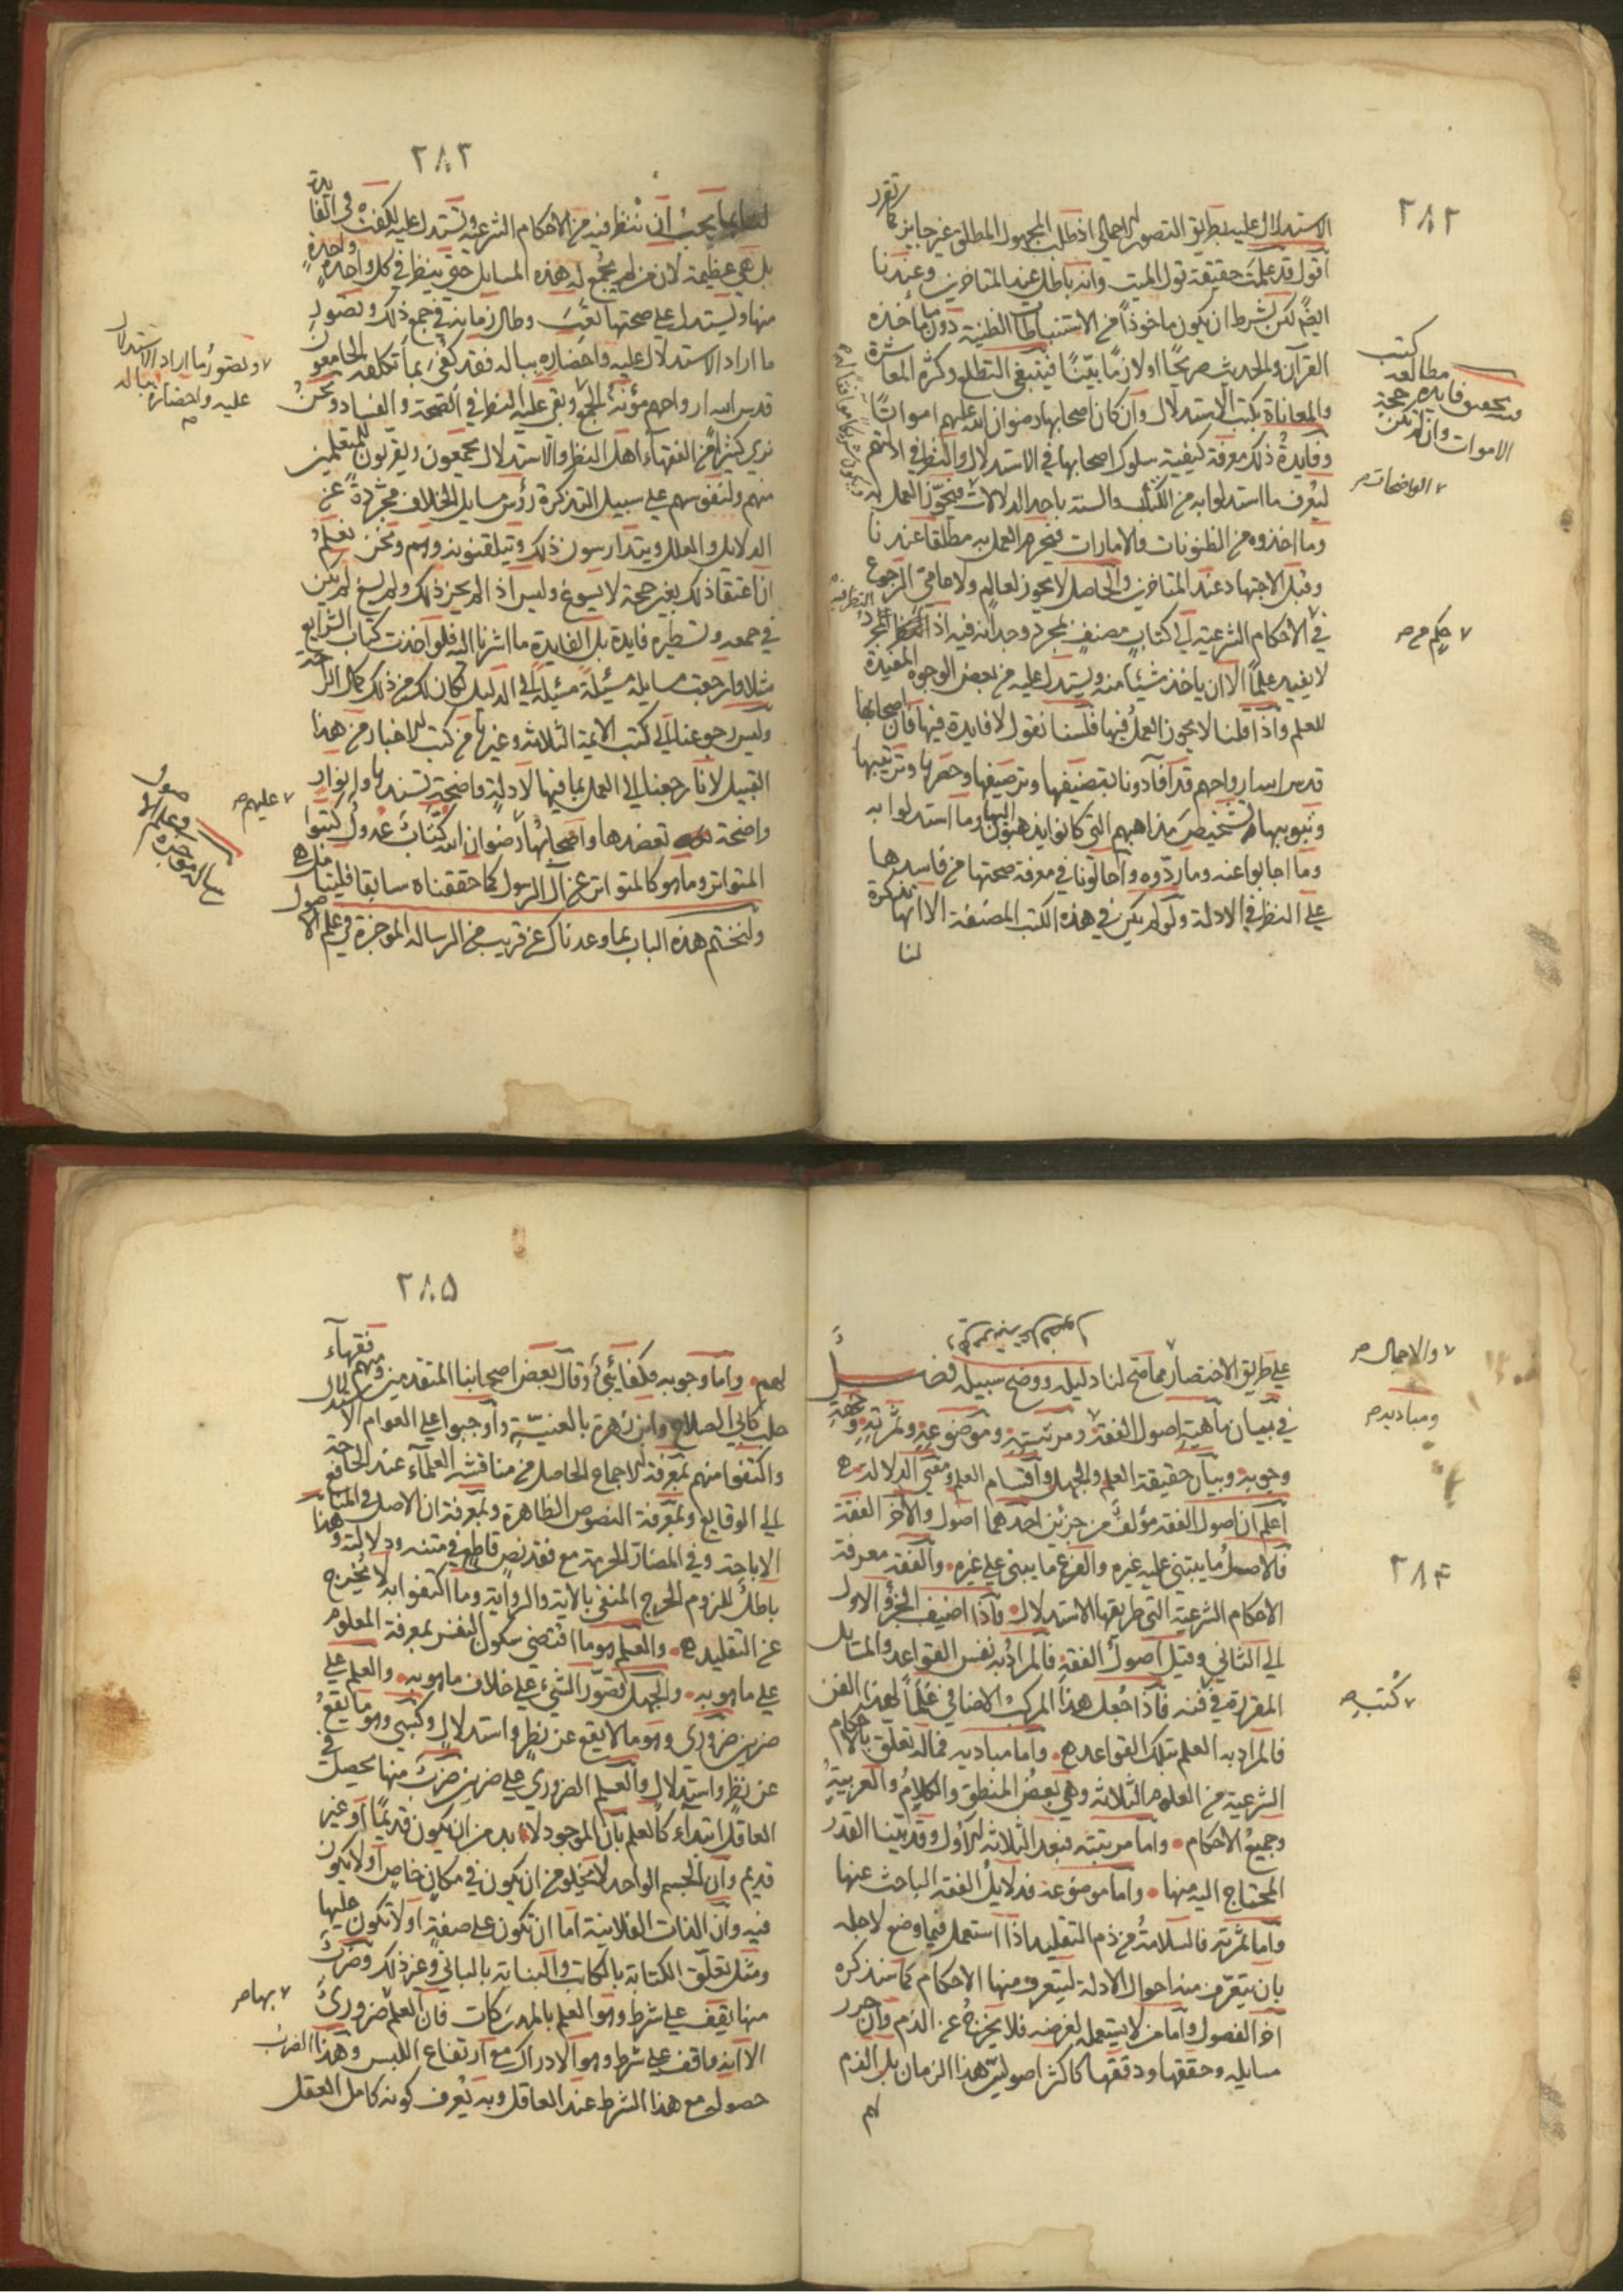 ٢٨٢
الاستدلال عليه بطريق التصور الاجمالي اذ طلب المجهول المطلق غير جايز كما تقرر
اقول قد علمت حقيقة قول الميت وانه باطل عند المتاخرين وعندنا
ايضً لكن بشرط ان يكون ماخوذاً من الاستنباطات الظنية دون ما ماخذه
القرآن والحديث صريحًا او لازمًا بيّنًا فينبغي التطلع وكثرة المعاشرة
والمعاناة بكتب الاستدلال وان كان اصحابها رضوان الله عليهم امواتًا
وفايدة ذلك معرفة كيفية سلوك اصحابها في الاستدلال والنظر في ادلتهم
ليُعرف ما استدلوا به من الكتاب والسنة باحد الدلالات فيجوّز العمل به
وما اخذوه من الظنونات والامارات فيحرم العمل به مطلقا عندنا
وقبل الاجتهاد عند المتاخرين والحاصل لا يجوز لعالم ولا عامي الرجوع
في الاحكام الشرعية الى كتاب مصنف لمجرد وجدانه فيه اذ المجرد
لا يفيد علمًا الا ان ياخذ شيئا منه ويستدل عليه من بعض الوجوه المفيدة
للعلم واذا قلنا لا يجوز العمل فيها فلسنا نقول لا فايدة فيها فان اصحابها
قدس الله ارواحهم قد افادونا بتصنيفها وترصيفها وحصرها وترتيبها
وتبويبها تشخيص مذاهبهم التي كانوا يذهبون اليها وما استدلوا به
وما اجابوا عنه وما ردّوه واحالونا في معرفة صحتها من فاسدها
على النظر في الادلة ولو لم يكن في هذه الكتب المصنفة الا انها تذكرة
لنا
كتب
مطالعه
فايده حجية
الاموات وان لم تكن
الواضحات صح
حكم من صح
٢٨٣
يجب ان ننظر فيه من الاحكام الشرعية ونستدل عليه لكفت في الفايدة
بل هي عظيمة لان من لم يجمع له هذه المسايل حتى ينظر في كل واحدة واحدة
منها ويستدل على صحتها تعب وطال زمانه في جمع ذلك وتصور
ما اراد الاستدلال عليه واحضاره بباله فقد كفي بما تكلفه الجامعون
قدس الله ارواحهم مؤنة الجمع وبقي عليه النظر في الصحة والفساد ونحن
نرى كثيرًا من الفقهاء اهل النظر والاستدلال يجمعون ويفرعون للمتعلمين
منهم ولنفوسهم على سبيل التذكرة رؤس مسايل الخلاف مجردة عن
الدلايل والعلل ويتدارسون ذلك ويتلقنونه وهم ونحن نعلم
ان اعتقاد ذلك بغير حجة لا يسوغ وليس اذا لم يجز ذلك ولم يسغ لم يكن
في جمعه وتسطيره فايدة بل الفايدة ما اشرنا اليه فلو اخذت كتاب الشرايع
مثلا وراجعت مسايله مسئلة مسئلة الى الدليل لكان لك من ذلك كمال الراحة
وليس رجوعنا الى كتب الايمة الثلاثة وغيرها من كتب الاخبار من هذا
القبيل لانا رجعنا الى العمل بما فيها لادلة واضحة نستند بها وانوار
واضحة تعضدها واصحابها رضوان الله كتّاب عدول كتبوا
المتواتر وما هو كالمتواتر عن آل الرسول كما حققناه سابقا فليتامل
ولنختم هذه الباب بما وعدناك عن قريب من الرسالة الموجزة في علم الاصول
ولتصور ما اراد الاستدلال
عليه واحضاره بباله
عليهم صح
رساله موجزه
في علم الاصول
٢٨٤
على طريق الاختصار مما صح لنا دليله ووضح سبيله فصل
في بيان ماهية اصول الفقه ومرتبته وموضوعه وثمرته وجهة
وجوبه وبيان حقيقة العلم والجهل واقسام العلم ومعنى الدلالة
اعلم ان اصول الفقه مؤلف من جزئين احدهما اصول والاخر الفقه
فالاصل ما يبتني عليه غيره والفرع ما يبنى على غيره والفقه معرفة
الاحكام الشرعية التي طريقها الاستدلال فاذا اضيف الجزؤ الاول
الى الثاني وقيل اصول الفقه فالمراد به نفس القواعد والمسايل
المقررة في فنه فاذا جعل هذا المركب الاضافي علمًا لهذا الفن
فالمراد به العلم بتلك القواعد واما مباديه فما له تعلق بالاحكام
الشرعية من العلوم الثلاثة وهي بعض المنطق والكلام والعربية
وجميع الاحكام واما مرتبته فبعد الثلاثة الاول وقد بيّنا القدر
المحتاج اليه منها واما موضوعه فدلايل الفقه الباحث عنها
واما ثمرته فالسلامة من ذم التقليد اذا استعمل فيما وضع لاجله
بان يتعرف منه احوال الادلة ليتعرف منها الاحكام كما سنذكره
اخر الفصول واما من لا يستعمله لغرضه فلا يخرج عن الذم وان حرر
مسايله وحققها ودققها كاكثر اصوليّ هذا الزمان بل الذم
لهم
والاجمال صح
ومباديه صح
كتب صح
٢٨٥
لهم واما وجوبه فكفائيّ وقال بعض اصحابنا المتقدمين ومنهم فقهاء
حلب كابي الصلاح وابن زهرة بالعينيّة واوجبوا على العوام الاستدلال
واكتفوا منهم بمعرفة الاجماع الحاصل من مناقشة العلماء عند الحاجة
الى الوقايع وبمعرفة النصوص الظاهرة وبمعرفة ان الاصل في المنافع
الاباحة وفي المضارّ الحرمة مع فقد نص قاطع في متنه ودلالته وهذا
باطل للزوم الحرج المنفي بالاية والرواية وما اكتفوا به لا يُخرج
عن التقليد والعلم هو ما اقتضى سكون النفس بمعرفة المعلوم
على ما هو به والجهل تصوّر الشيء على خلاف ما هو به والعلم على
ضربين ضروري وهو ما لا يقع عن نظر واستدلال وكسبي وهو ما يقع
عن نظر واستدلال والعلم الضروري على ضربين ضرب منها يحصل في
العاقل ابتداءً كالعلم بان الموجود لا بد من ان يكون قديمًا او غير
قديم وان الجسم الواحد لا يخلو من ان يكون في مكان خاص او لا يكون
فيه وان الذات الفلانية اما ان تكون على صفة او لا تكون عليها
ومثل تعلق الكتابة بالكاتب والبناية بالباني وغير ذلك وضرب
منها يقف على شرط وهو العلم بالمدركات فان العلم ضروريّ
الا انه واقف على شرط وهو الادراك مع ارتفاع اللبس وهذا الضرب
حصوله مع هذا الشرط عند العاقل وبه يُعرف كونه كامل العقل
بها صح